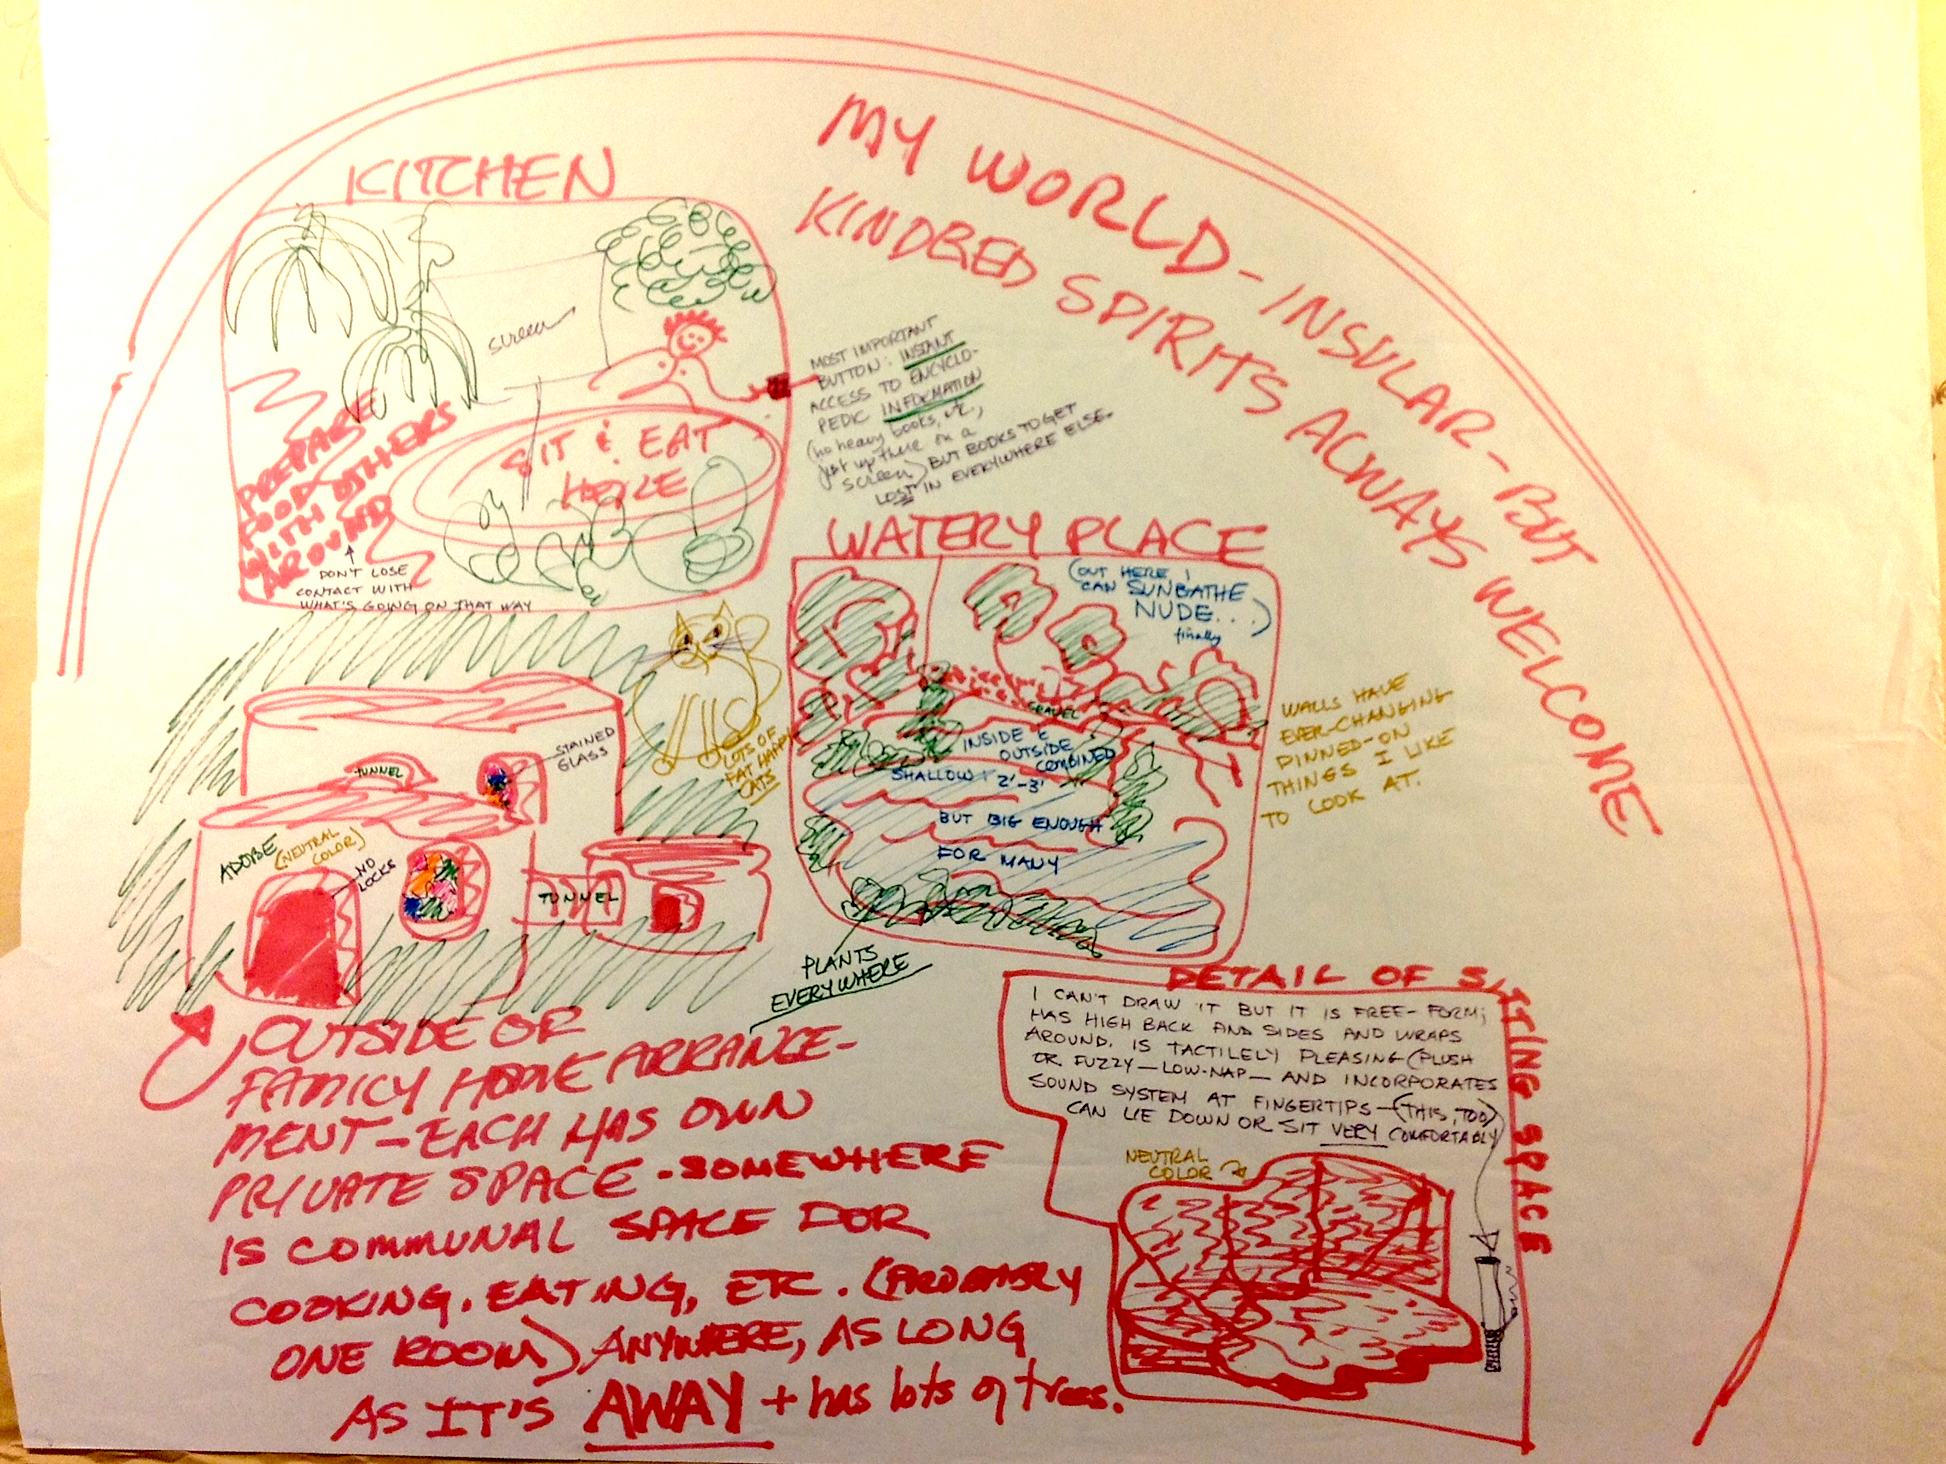 MY WORLD - INSULAR - BUT
KINDRED SPIRITS ALWAYS WELCOME
KITCHEN
screen
PREPARE
FOOD
WITH OTHERS
AROUND
SIT & EAT
HERE
DON'T LOSE
CONTACT WITH
WHAT'S GOING ON THAT WAY
MOST IMPORTANT
BUTTON: INSTANT
ACCESS TO ENCYCLO-
PEDIC INFORMATION
(no heavy books, etc,
just up there on a
screen) BUT BOOKS TO GET
LOST IN EVERYWHERE ELSE.
WATERY PLACE
(OUT HERE I
CAN SUNBATHE
NUDE...)
finally
GRAVEL
INSIDE &
OUTSIDE
COMBINED
SHALLOW 2'-3'
BUT BIG ENOUGH
FOR MANY
WALLS HAVE
EVER-CHANGING
PINNED-ON
THINGS I LIKE
TO LOOK AT.
LOTS OF
FAT HAPPY
CATS
STAINED
GLASS
TUNNEL
ADOBE (NEUTRAL
COLOR)
NO
LOCKS
TUNNEL
PLANTS
EVERYWHERE
OUTSIDE OF
FAMILY HOME ARRANGE-
MENT - EACH HAS OWN
PRIVATE SPACE - SOMEWHERE
IS COMMUNAL SPACE DOR
COOKING, EATING, ETC. (PROBABLY
ONE ROOM) ANYWHERE, AS LONG
AS IT'S AWAY + has lots of trees.
DETAIL OF SITTING SPACE
I CAN'T DRAW IT BUT IT IS FREE-FORM;
HAS HIGH BACK AND SIDES AND WRAPS
AROUND. IS TACTILELY PLEASING (PLUSH
OR FUZZY - LOW-NAP - AND INCORPORATES
SOUND SYSTEM AT FINGERTIPS - (THIS, TOO)
CAN LIE DOWN OR SIT VERY COMFORTABLY
NEUTRAL
COLOR